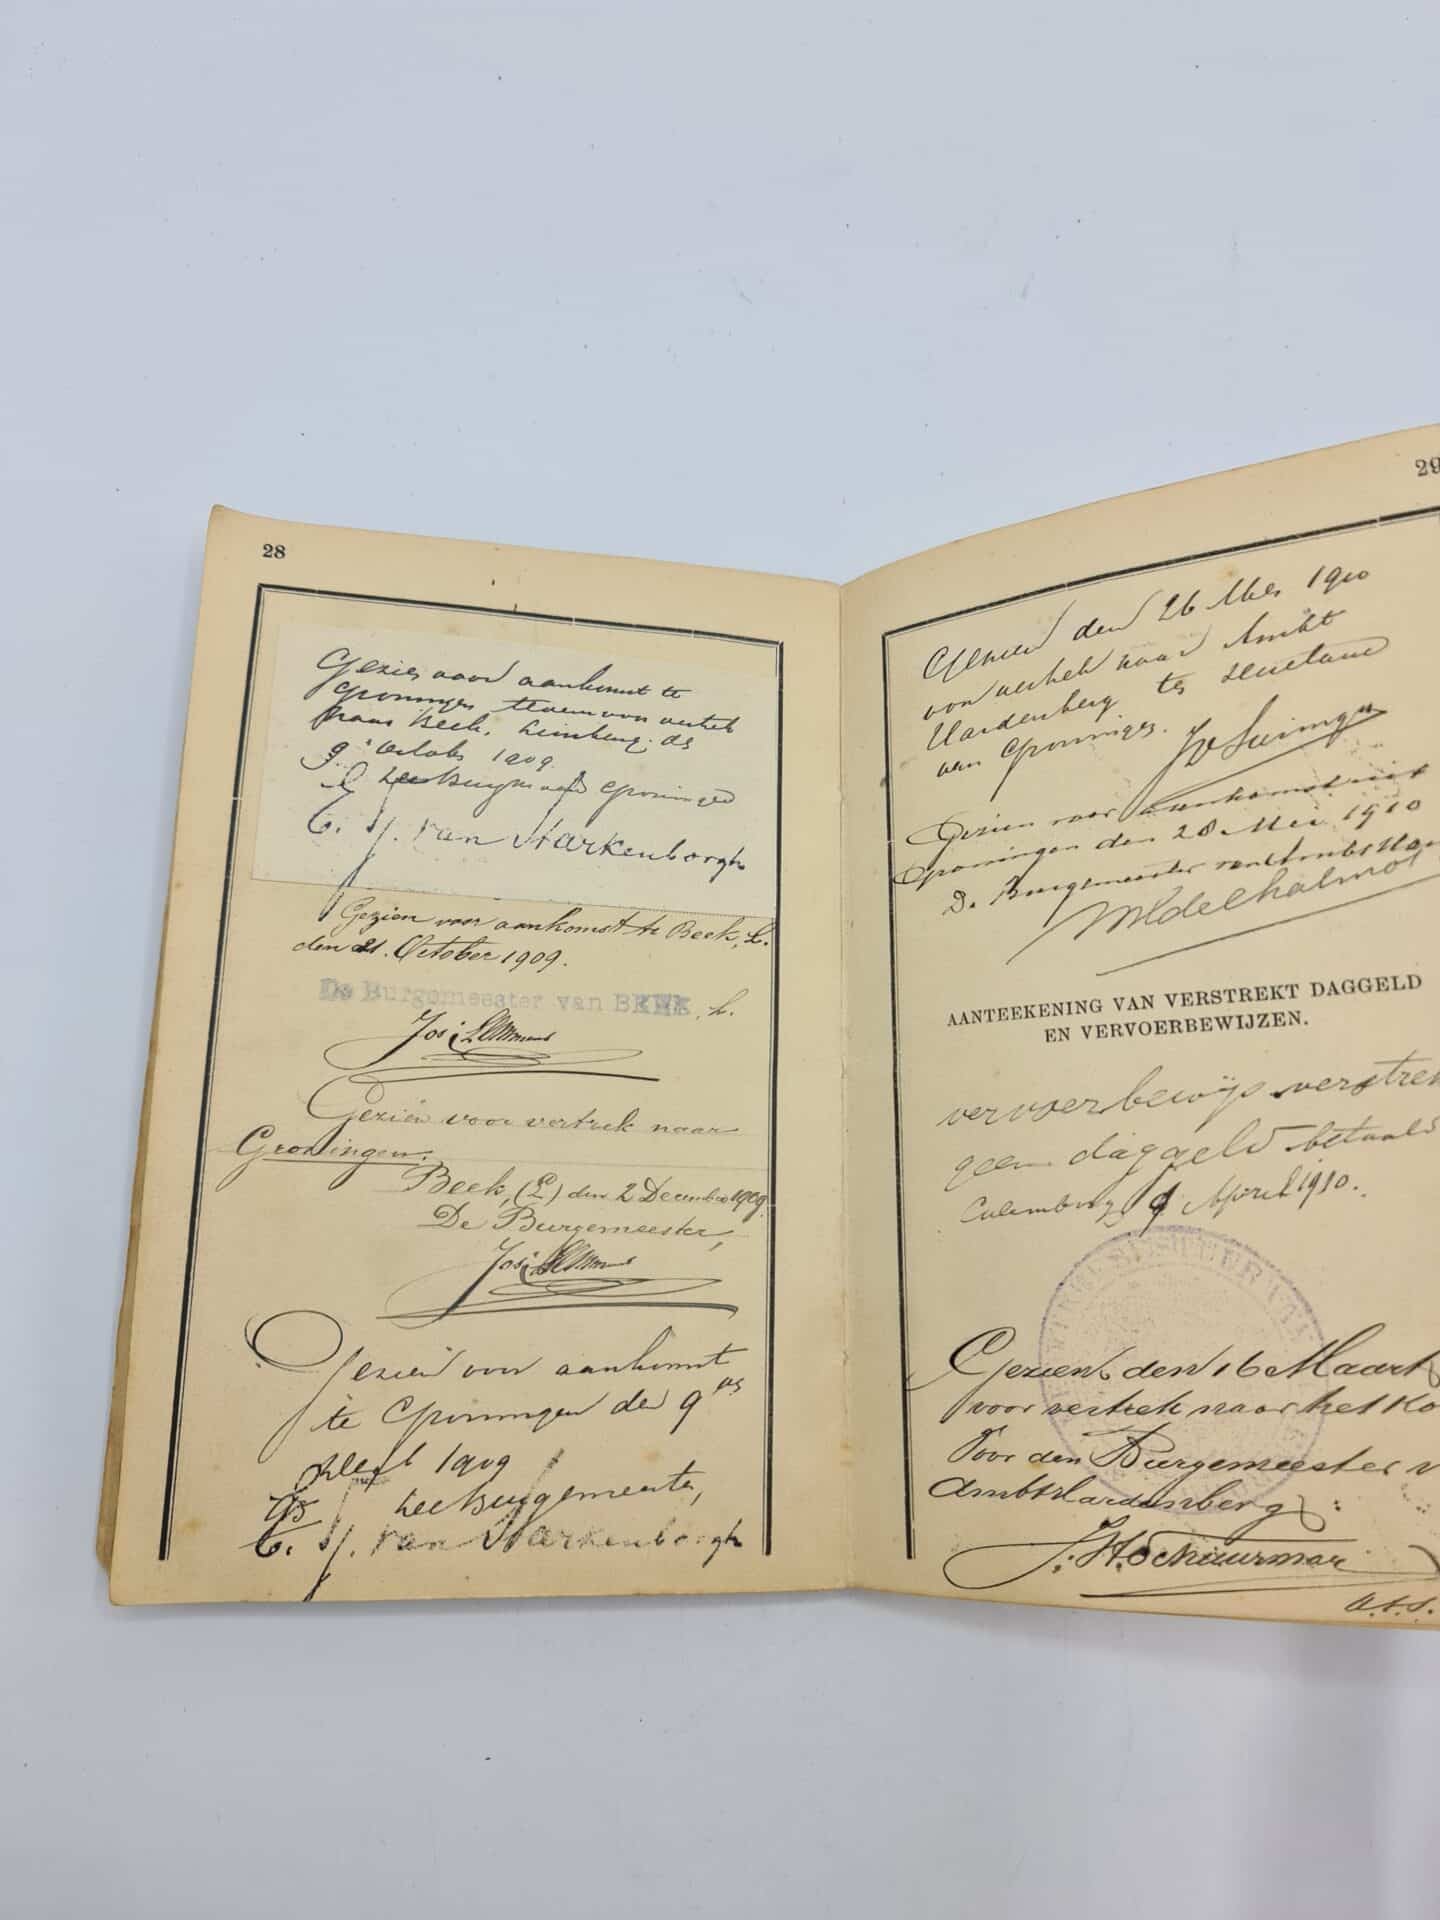 28
Gezien voor aankomst te
Groningen tevens voor vertrek
naar Beek, Limburg, de
9e October 1909
De Burgemr Groningen
E. Tj. van Starkenborgh
Gezien voor aankomst te Beek, L.
den 21. October 1909.
De Burgemeester van BEEK, L.
Jos:
Gezien voor vertrek naar
Groningen.
Beek, (L) den 2 December 1909.
De Burgemeester,
Jos:
Gezien voor aankomst
te Groningen den 9den
1909
De Burgemeester,
E. Tj. van Starkenborgh
29
Gezien den 26 Mei 1910
voor vertrek naar Ambt
Hardenberg ter secretarie
van Groningen.
Gezien voor aankomst uit
Groningen den 28 Mei 1910
De Burgemeester van Ambt
AANTEEKENING VAN VERSTREKT DAGGELD
EN VERVOERBEWIJZEN.
vervoerbewijs verstrek
geen daggeld betaald
Culemborg April 1910.
Gezien den 16 Maart
voor vertrek naar het
Voor den Burgemeester v
Ambt Hardenberg:
J. H. Schuurman